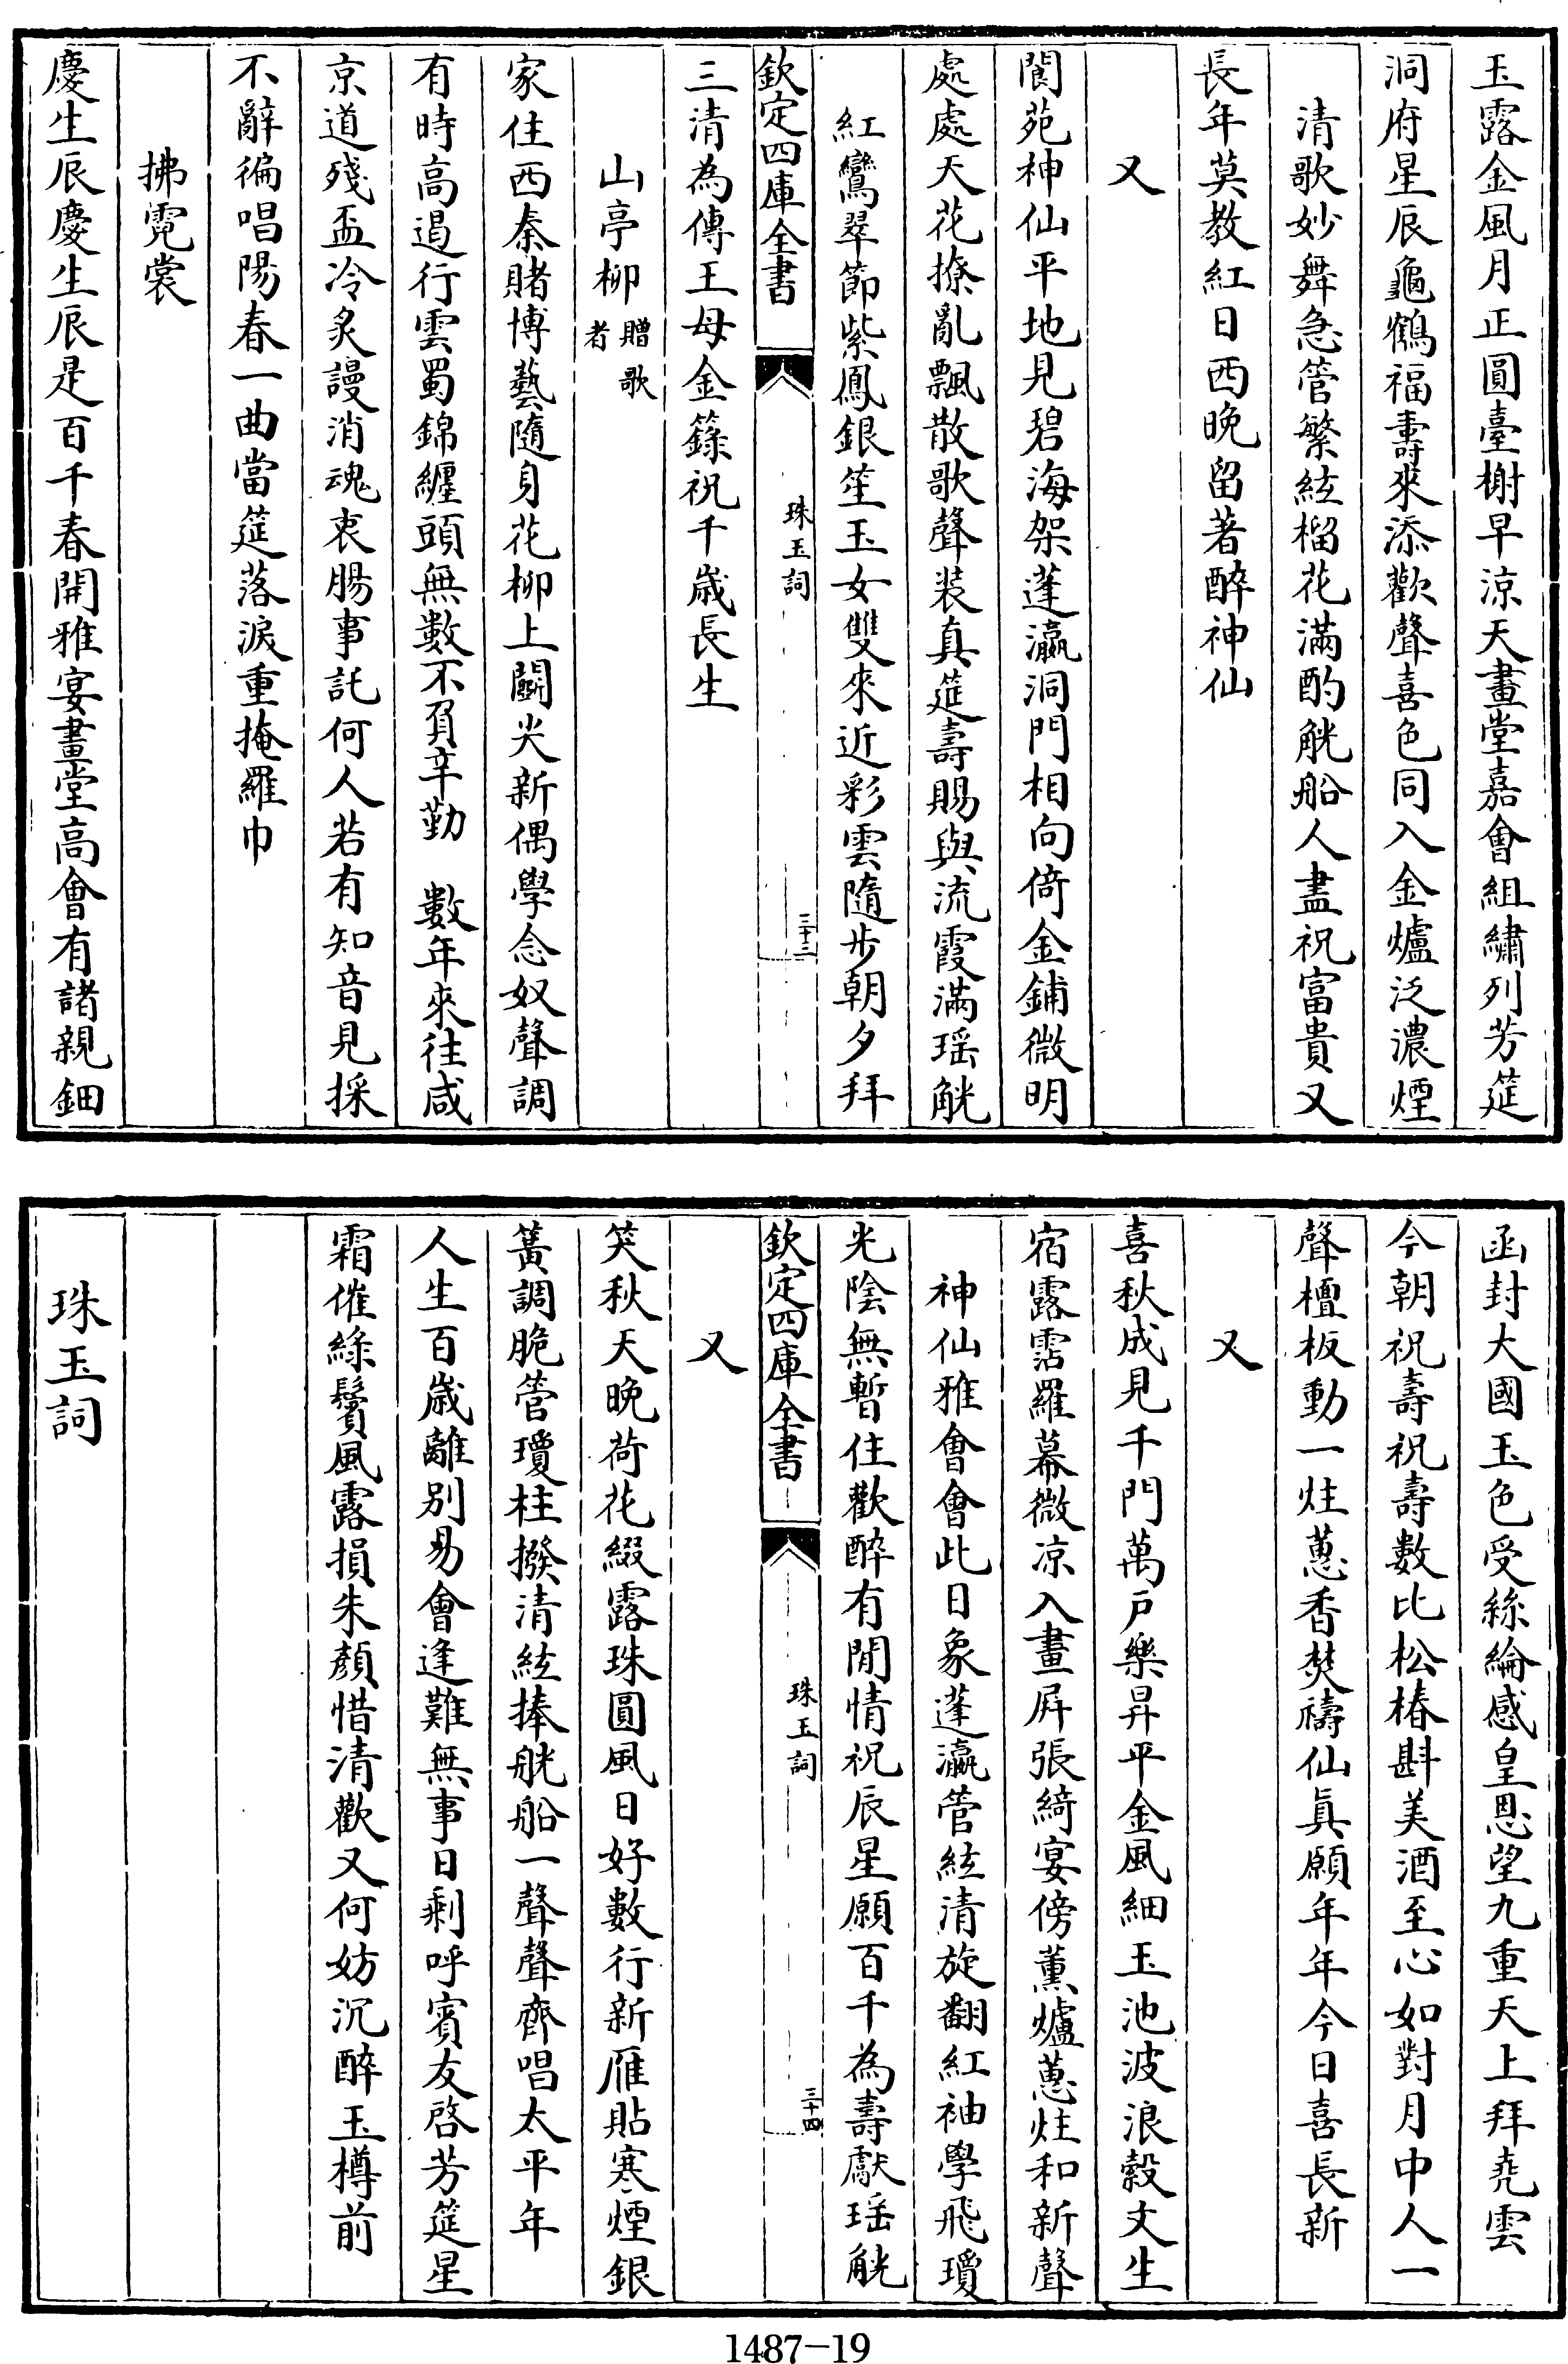 玉露金風月正圓臺榭早涼天畫堂嘉會組繡列芳筵
洞府星辰龜鶴福壽來添歡聲喜色同入金爐泛濃煙
清歌妙舞急管繁絃榴花滿酌觥船人盡祝富貴又
長年莫教紅日西晚留著醉神仙
又
閬苑神仙平地見碧海架蓬瀛洞門相向倚金鋪微明
處處天花撩亂飄散歌聲装真筵壽賜與流霞滿瑶觥
紅鸞翠節紫鳳銀笙玉女雙來近彩雲隨步朝夕拜
欽定四庫全書
珠玉詞
三十三
三清為傳王母金籙祝千歲長生
山亭柳
贈歌
者
家住西秦賭博藝隨身花柳上鬭尖新偶學念奴聲調
有時高遏行雲蜀錦纏頭無數不負辛勤 數年來往咸
京道殘盃冷炙謾消魂衷腸事託何人若有知音見採
不辭徧唱陽春一曲當筵落淚重掩羅巾
拂霓裳
慶生辰慶生辰是百千春開雅宴畫堂高會有諸親鈿
函封大國玉色受絲綸感皇恩望九重天上拜堯雲
今朝祝壽祝壽數比松椿斟美酒至心如對月中人一
聲檀板動一炷蕙香焚禱仙真願年年今日喜長新
又
喜秋成見千門萬戶樂昇平金風細玉池波浪縠文生
宿露霑羅幕微凉入畫屏張綺宴傍薰爐蕙炷和新聲
神仙雅會會此日象蓬瀛管絃清旋翻紅袖學飛瓊
光陰無暫住歡醉有閒情祝辰星願百千為壽獻瑶觥
欽定四庫全書
珠玉詞
三十四
又
笑秋天晚荷花綴露珠圓風日好數行新雁貼寒煙銀
簧調脆管瓊柱撥清絃捧觥船一聲聲齊唱太平年
人生百歲離别易會逢難無事日剩呼賓友啓芳筵星
霜催綠鬢風露損朱顏惜清歡又何妨沉醉玉樽前
珠玉詞
1487-19